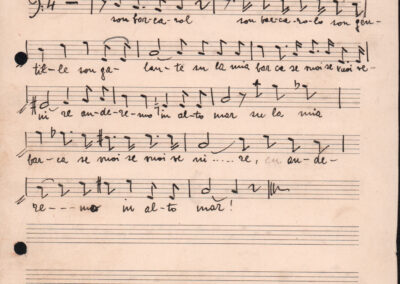 son bar-ca-rol son bar-ca-ro-lo son gen-
til-le son ga- lan-te su la mia bar ca se vuoi se vuoi ve-
ni-re an-de-re-mo in al-to mar su la mia
bar-ca se vuoi se vuoi se ni......re, en an-de-
re---mo in al-to mar!